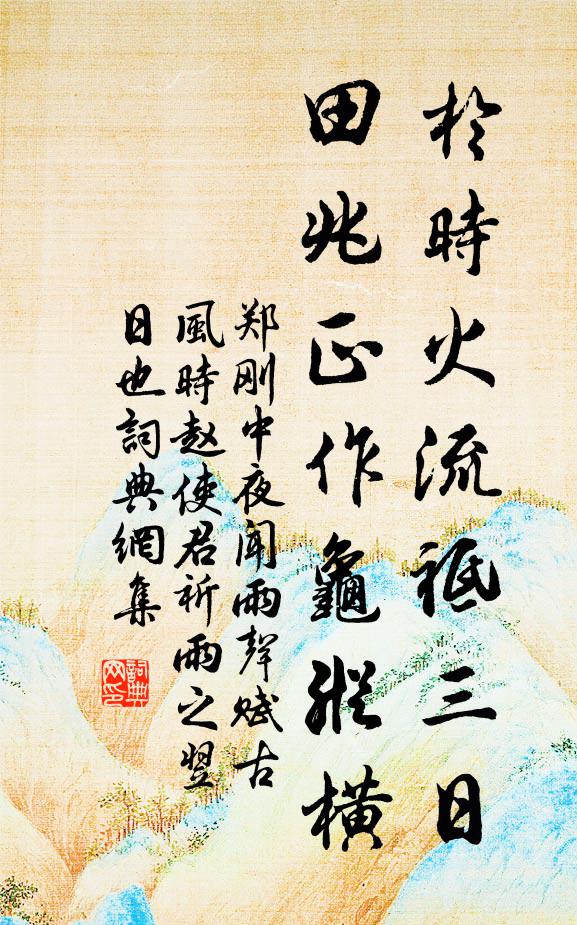 於時火流祗三日
田兆正作龜縱橫
郑刚中夜聞雨聲赋古
風時赵使君祈雨之翌
日也詞典網集
詞典
网印